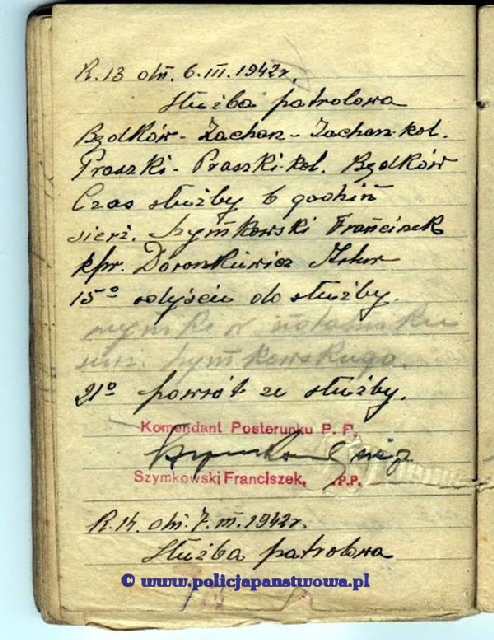 R.13 dn. 6.III.1942r.
Służba patrolowa
Będków - Zacharz - Zacharz-kol.
Praszki - Praszki-kol. Będków
Czas służby 6 godzin
sierż. Szymkowski Franciszek
kpr. Doronkiewicz Artur
15° odejście do służby.
sierż. Szymkowskiego.
21° powrót ze służby.
Komendant Posterunku P. P.
Szymkowski Franciszek, P.P.
R.14. dn. 7.III.1942r.
Służba patrolowa
© www.policjapanstwowa.pl